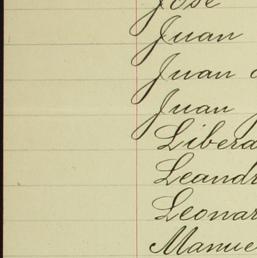 José
Juan
Juan
Juan
Libera
Leandr
Leonar
Manue